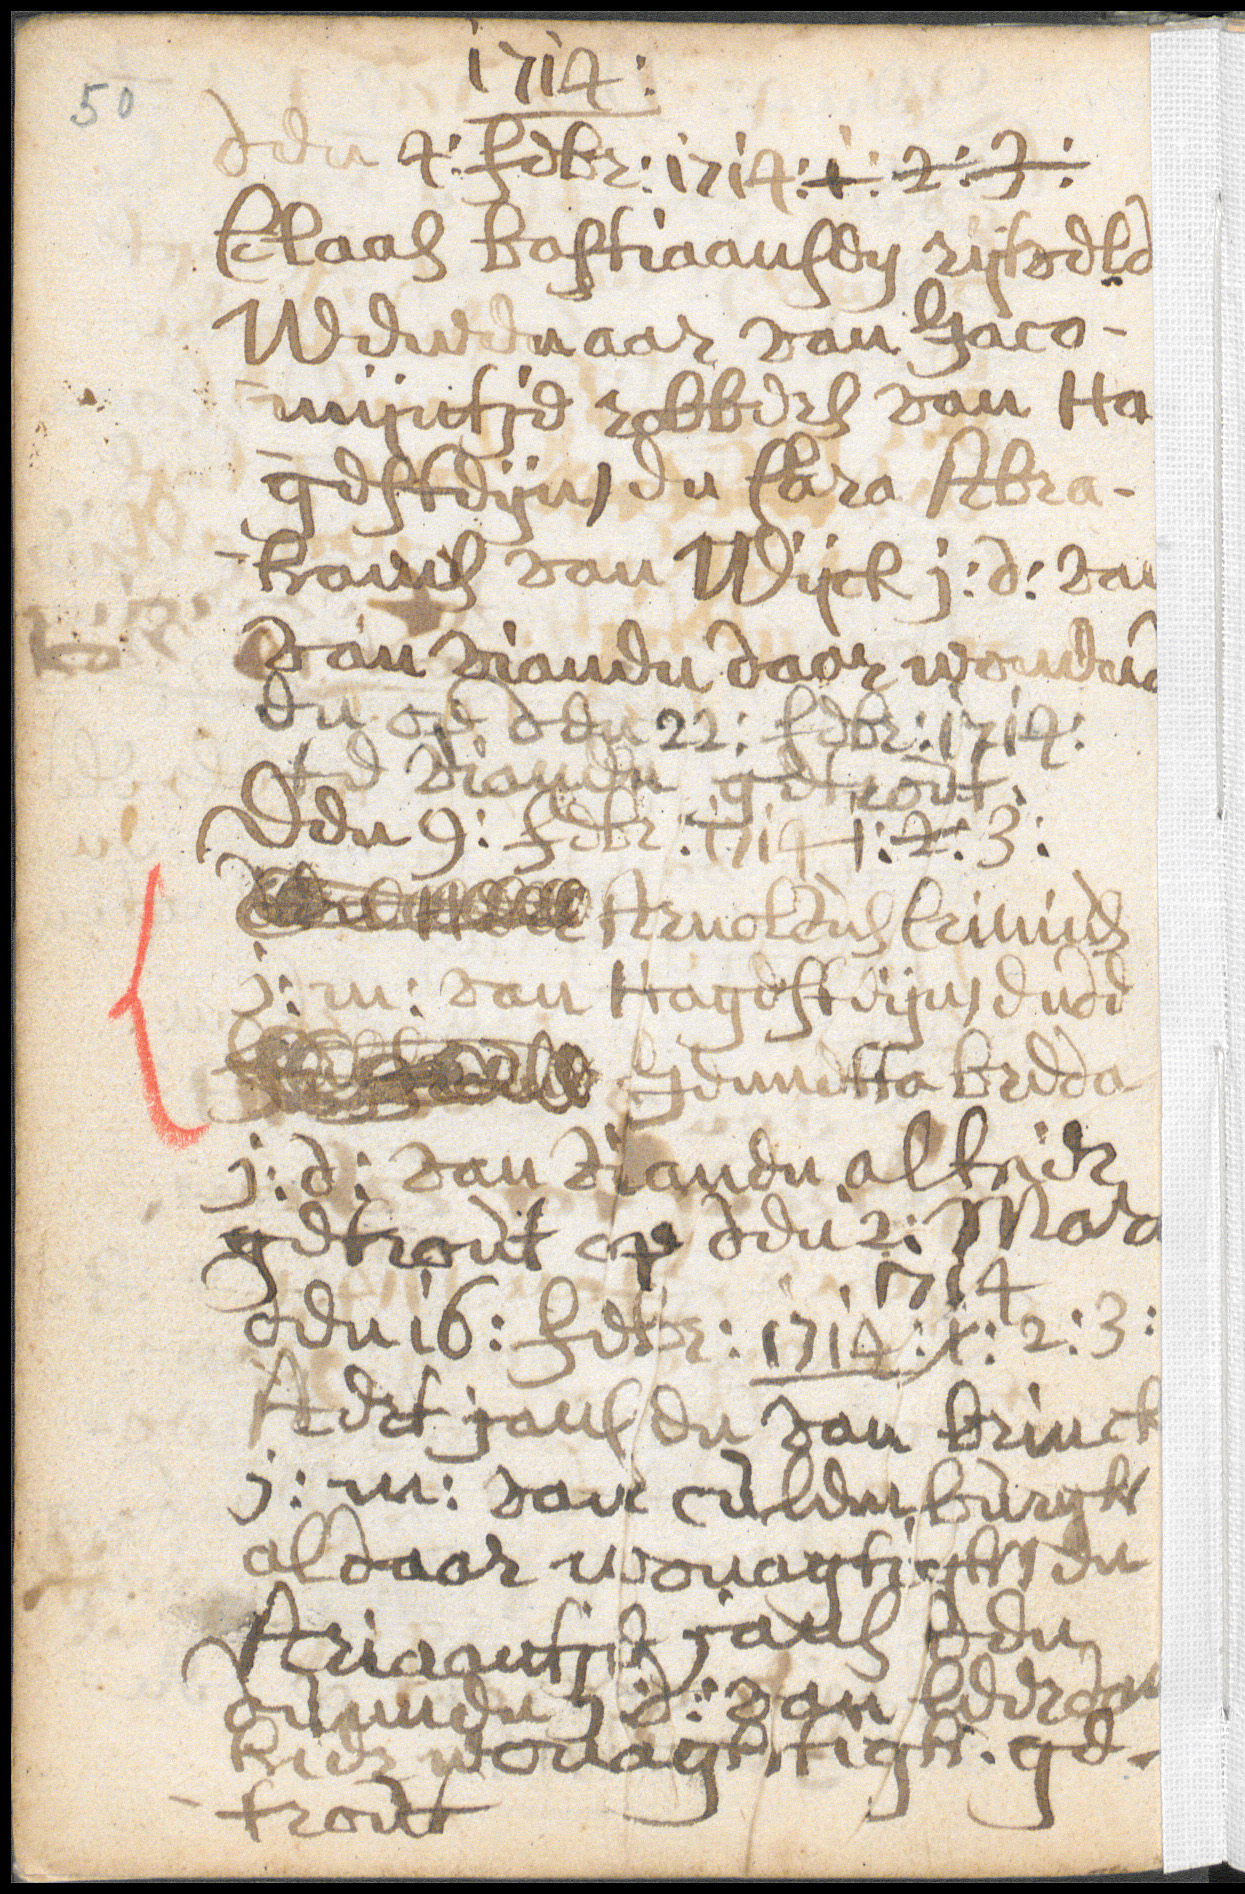 1714:
50
den 4: febr: 1714: 1: 2: 3:
Claas bastiaansen rijkeld
Weduwenaar van Jaco-
-mijntje robbers van Ha
-gesteijn, en Clara Abra-
-hams van Wijck j: d: van
van vianen daar wonend
en op den 22: febr: 1714:
te vianen getrout,
Den 9: febr: 1714 1: 2: 3:
Arnoldus
j: m: van Hagesteijn, ende
Gennetta breda
j: d: van vianen, alhier
getrout op den 2: Mara
1714
den 16: febr: 1714: 1: 2: 3:
Aert jansen van brinck
j: m: van culenburgh
aldaar wonaghtigh, en
Ariaantje jans den
j: d: van Leerdam
hier wonaghtigh. ge-
-trout